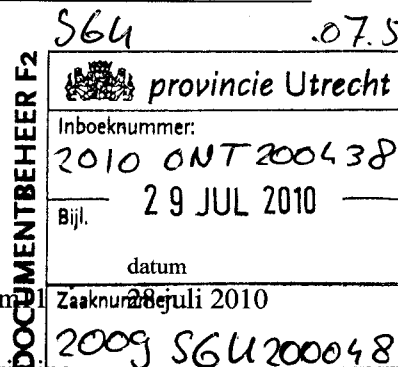 SGU .07.5
DOCUMENTBEHEER F2
provincie Utrecht
Inboeknummer:
2010 ONT 200438
Bijl. 29 JUL 2010
datum
Zaaknummer: 28 juli 2010
2009 SGU200048